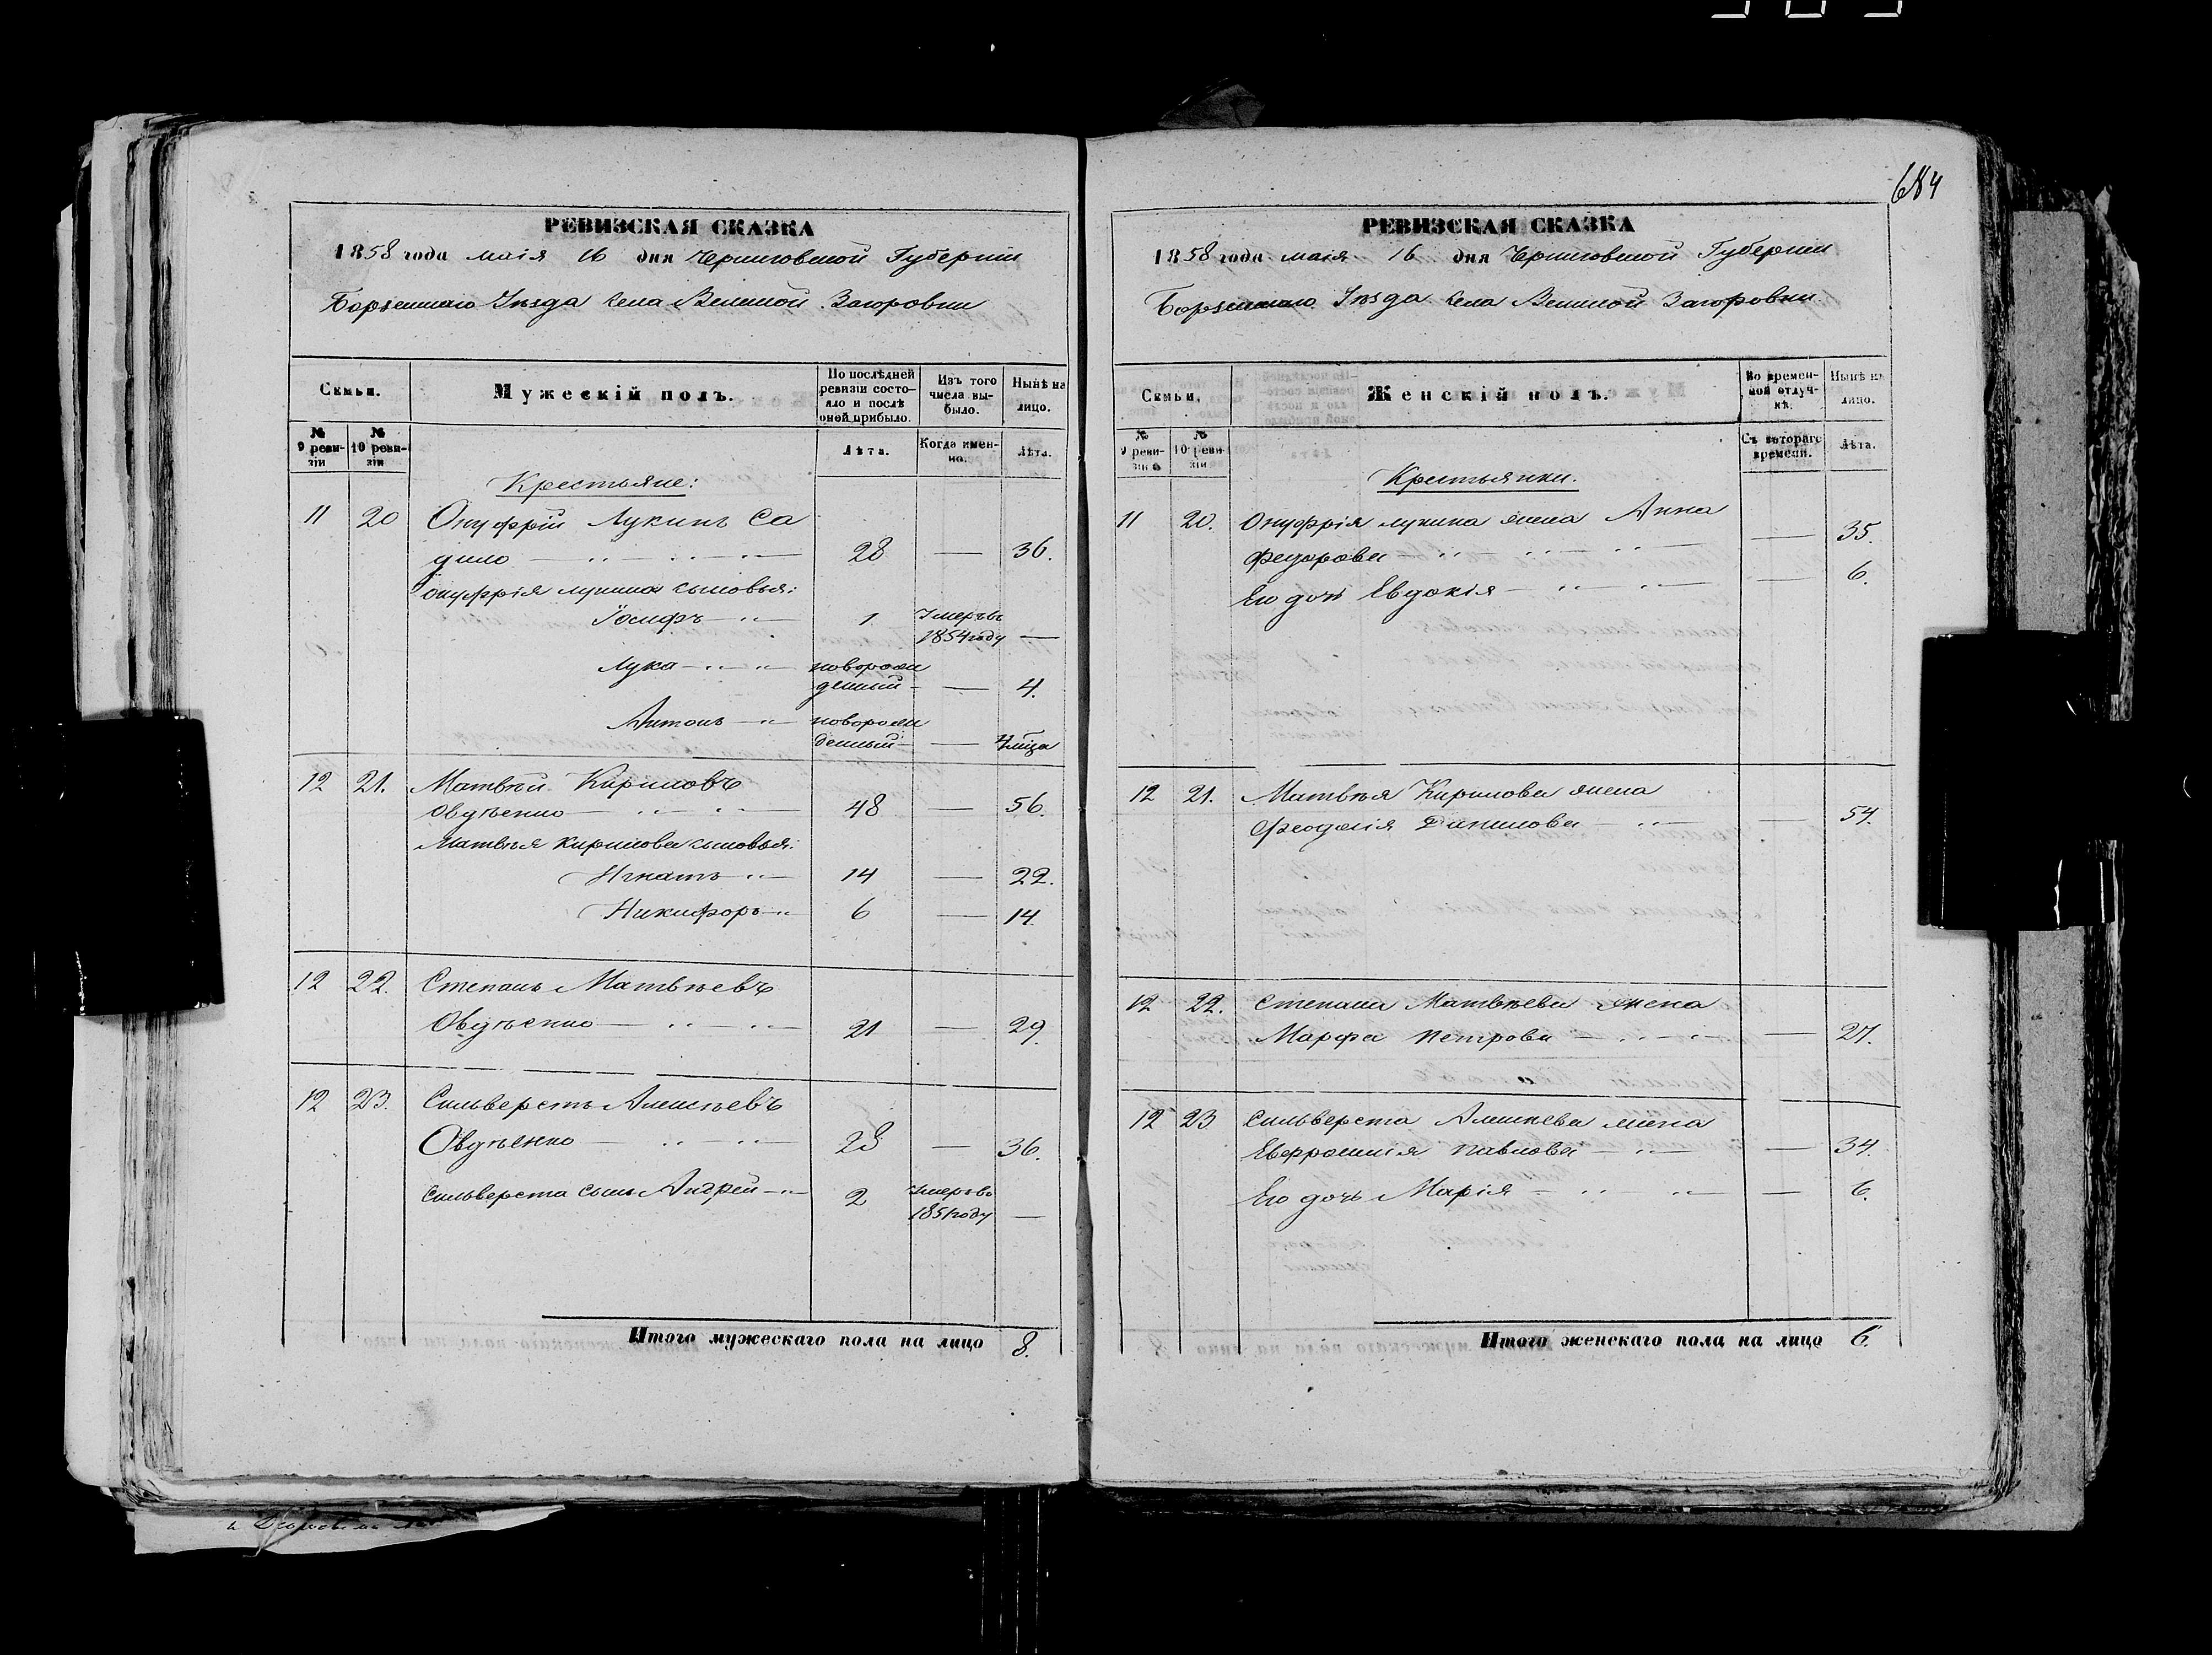 684
РЕВИЗСКАЯ СКАЗКА
1858 года маія 16 дня Черниговской Губерніи
Борзенскаго Уѣзда села Великой Загоровки
Семьи. Мужескій полъ. По послѣдней ревизіи состояло и послѣ оной прибыло. Изъ того числа выбыло. Нынѣ на лицо.
№ 9 ревизіи № 10 ревизіи Лѣта. Когда именно. Лѣта.
Крестьяне:
11 20 Онуфрій Лукинъ Са
дило — 28 — 36.
Онуфрія лукина сыновья:
Іосифъ — 1 Умеръ въ 1854 году —
Лука — новорожденный — — 4.
Антонъ — новорожденный — — 4 мца
12 21. Матвѣй Кириловъ
Овдѣенко — 48 — 56.
Матвѣя Кирилова сыновья:
Игнатъ — 14 — 22.
Никифоръ — 6 — 14.
12 22. Степанъ Матвѣевъ
Овдѣенко — 21 — 29.
12 23. Сильверстъ Алексѣевъ
Овдѣенко — 28 — 36.
Сильверста сынъ Андрей — 2 Умеръ въ 1851 году —
Итого мужескаго пола на лицо 8.
РЕВИЗСКАЯ СКАЗКА
1858 года маія 16 дня Черниговской Губерніи
Борзенскаго Уѣзда села Великой Загоровки
Семьи. Женскій полъ. Во временной отлучкѣ. Нынѣ на лицо.
№ 9 ревизіи № 10 ревизіи Съ котораго времени. Лѣта.
Крестьянки.
11 20. Онуфрія лукина жена Анна
Федорова — — 35.
Его дочь Евдокія — — 6.
12 21. Матвѣя Кирилова жена
Феодосія Данилова — — 54.
12 22. Степана Матвѣева жена
Марфа Петрова — — 27.
12 23 Сильверста Алексѣева жена
Евфросинія Павлова — — 34.
Его дочь Марія — — 6.
Итого женскаго пола на лицо 6.